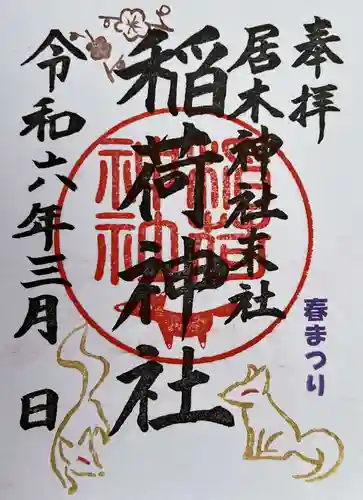 奉拝
居木神社末社
稲荷神社
令和六年三月　日
春まつり
稲荷
神社